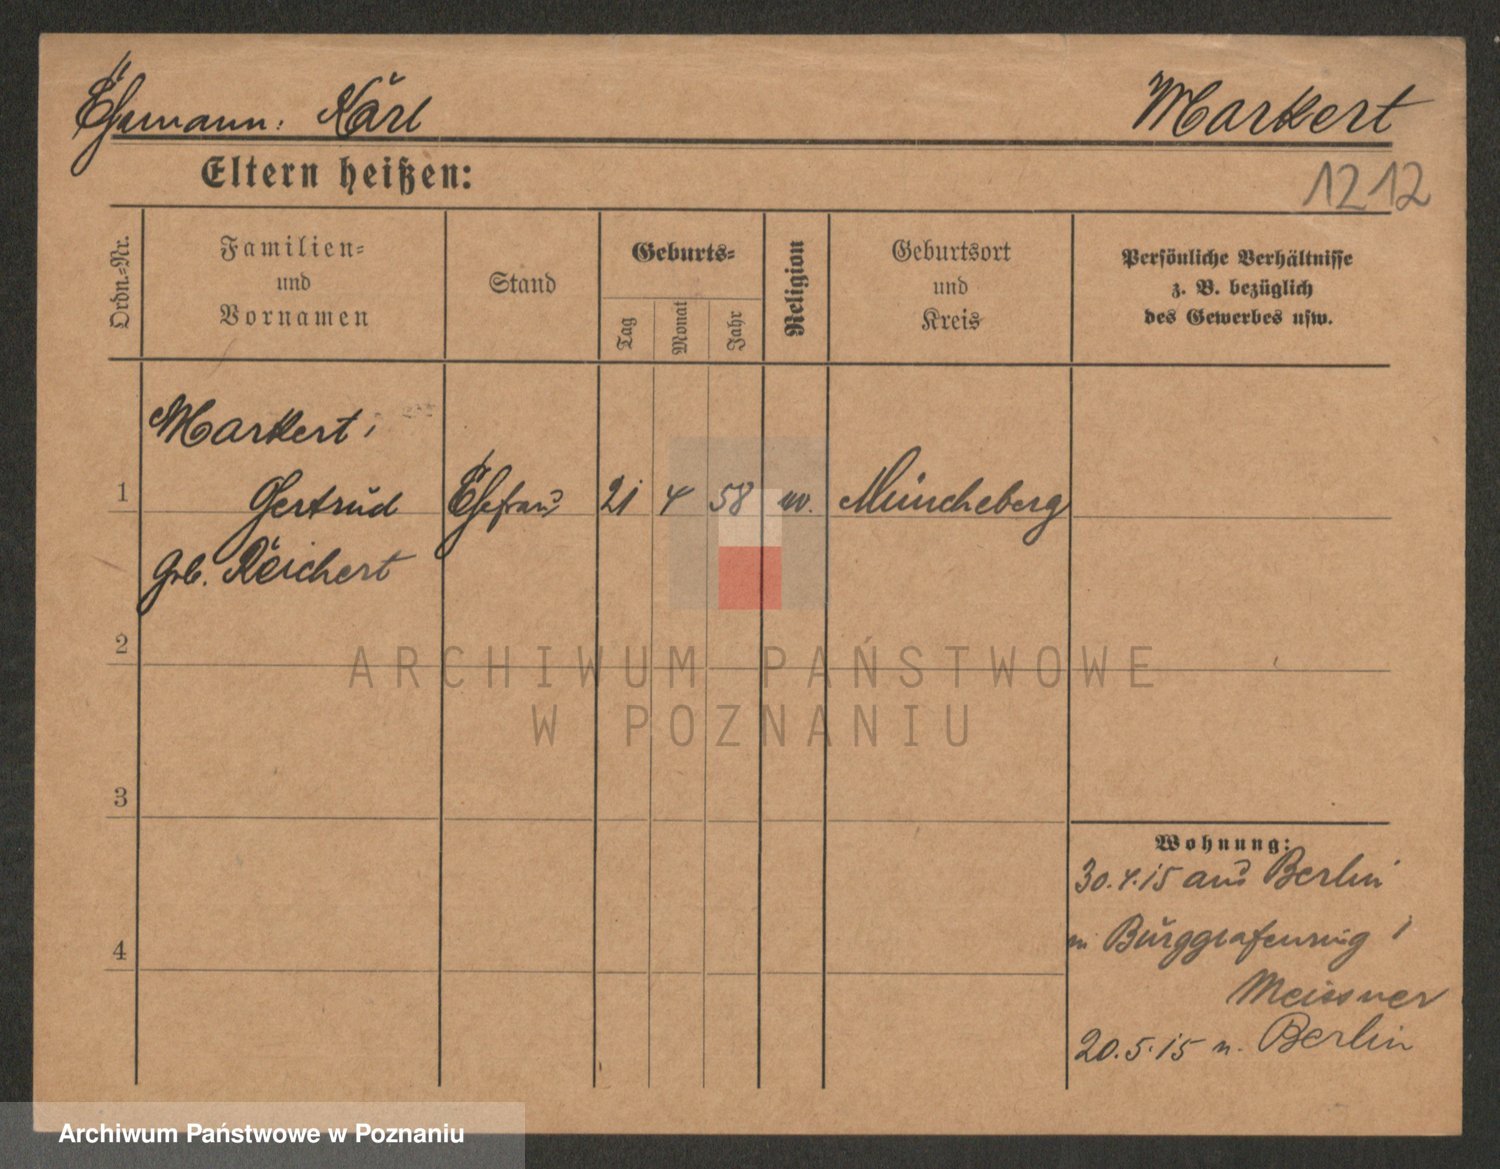 Ehemann: Karl Markert
Eltern heißen:
1212
Ordn.-Nr.
Familien-
und
Vornamen
Stand
Geburts-
Tag
Monat
Jahr
Religion
Geburtsort
und
Kreis
Persönliche Verhältnisse
z. B. bezüglich
des Gewerbes usw.
Markert,
1 Gertrud Ehefrau 21 4 58 Müncheberg
geb. Reichert
2
3
4
Wohnung:
30.4.15 aus Berlin
n Burggrafenring 1
Meissner
20.5.15 n. Berlin
ARCHIWUM PAŃSTWOWE
W POZNANIU
Archiwum Państwowe w Poznaniu